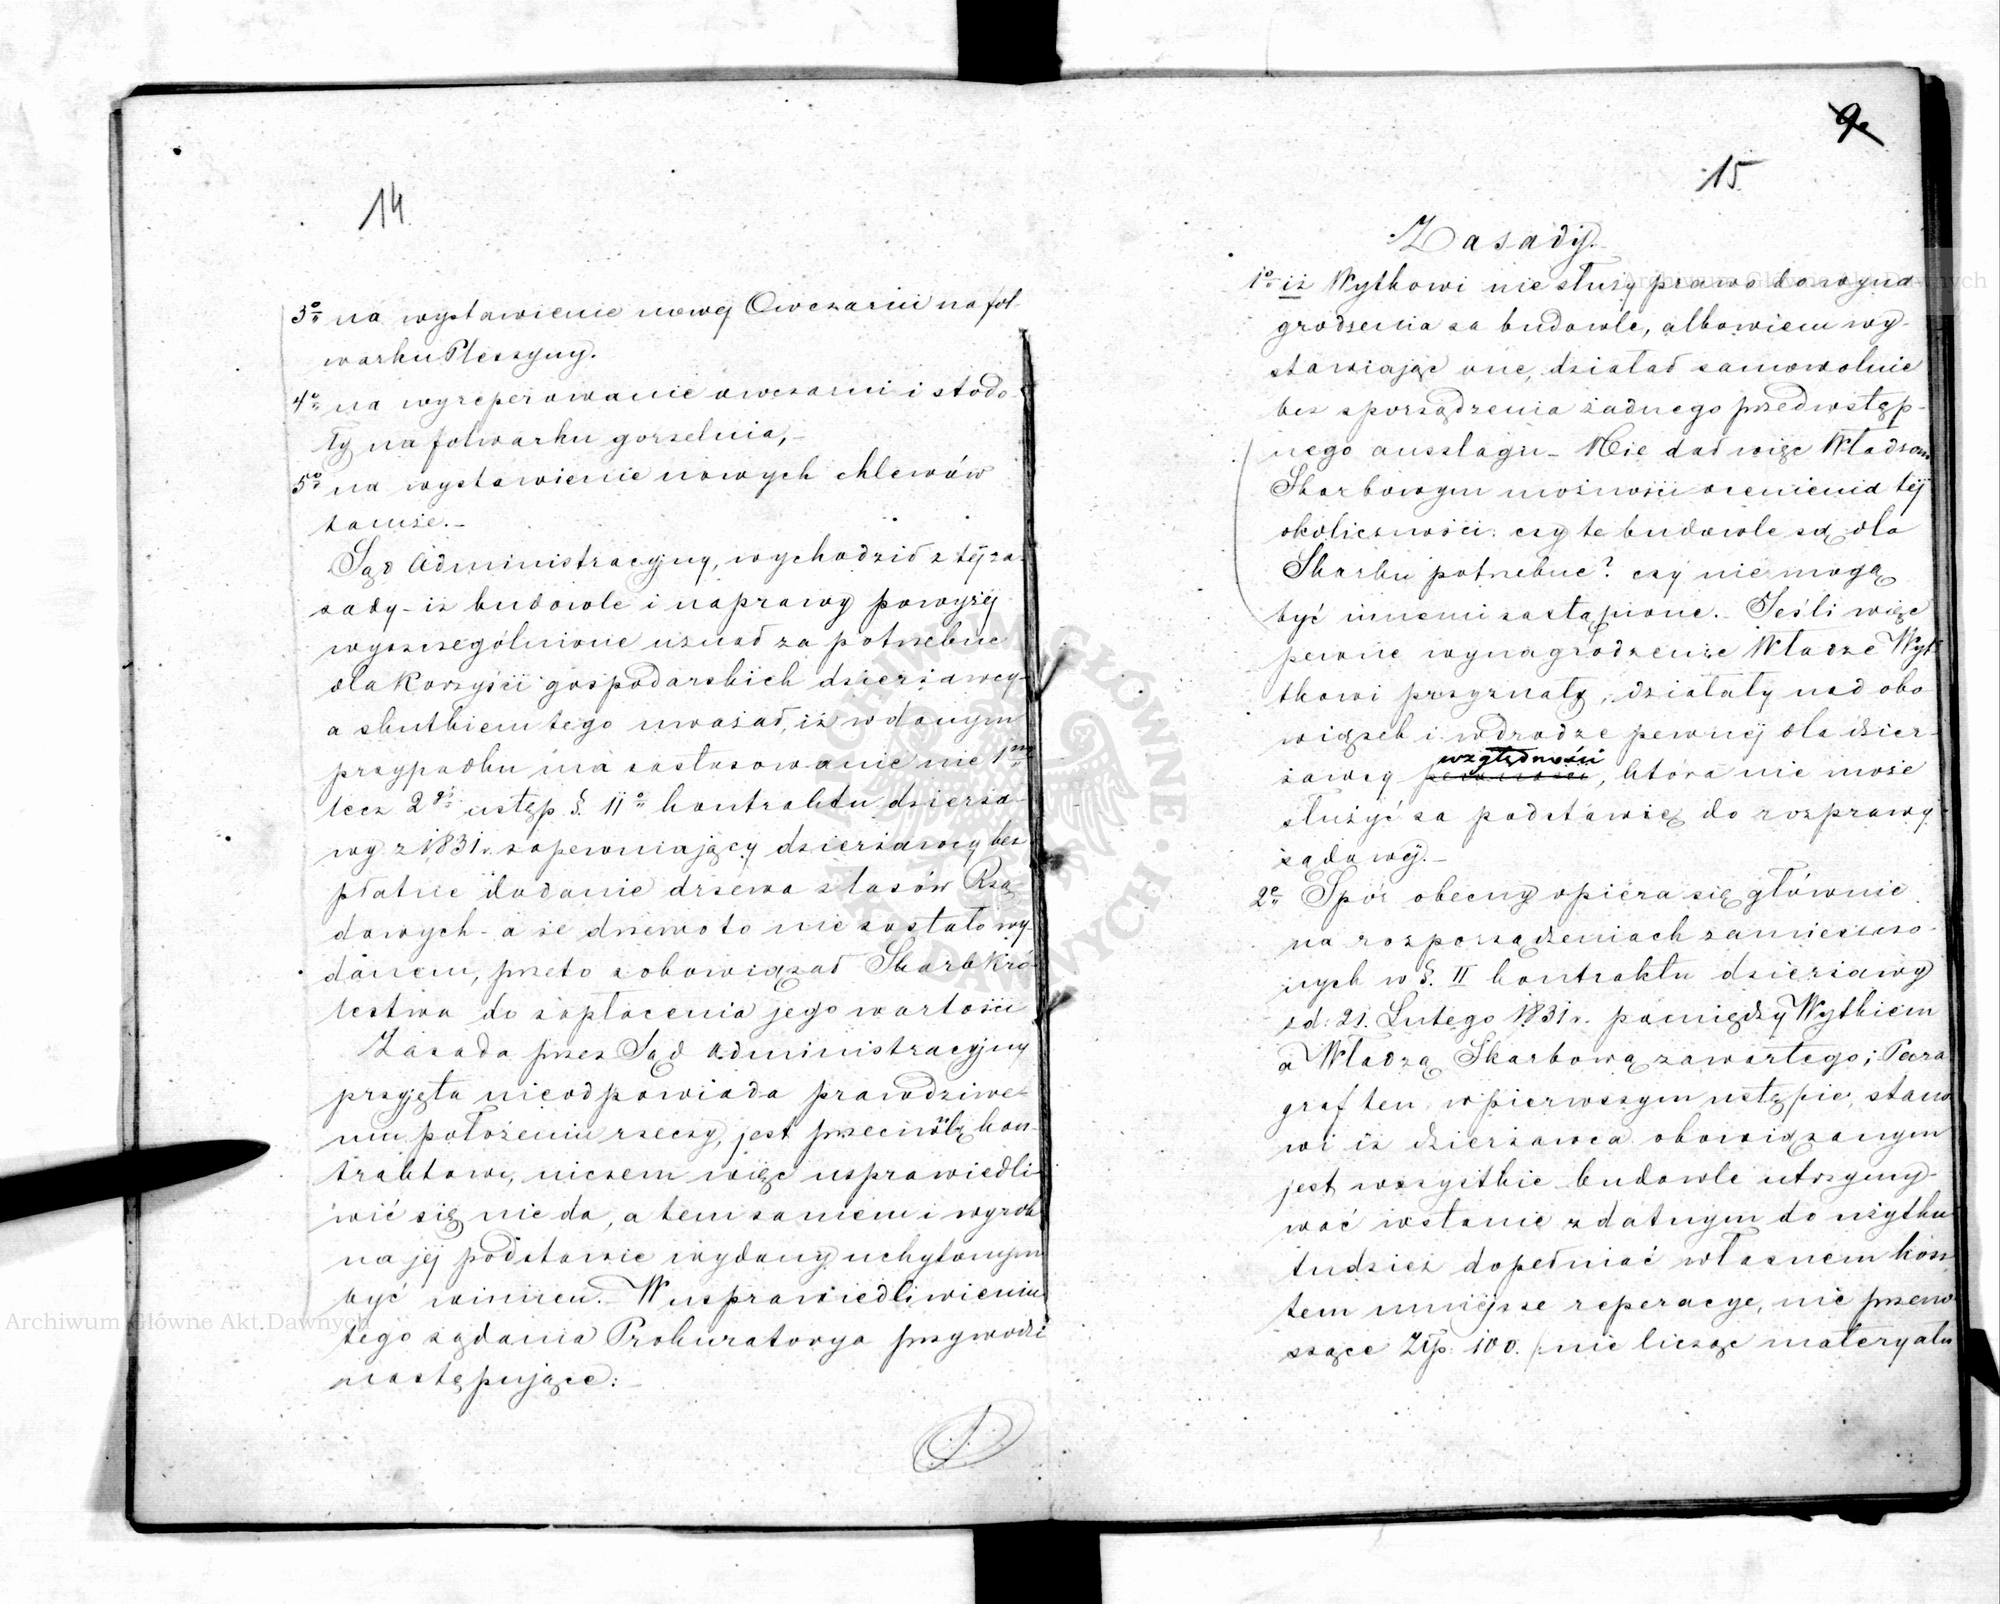 14
3o na wystawienie nowej Owczarni na fol-
warku Pleszyny.
4o na wyreperowanie owczarni i stodo-
ły na folwarku gorzelnia,–
5o na wystawienie nowych chlewów
tamże.–
Sąd Administracyjny, wychodził z téj za-
sady – iż budowle i naprawy powyżéj
wyszczególnione uznał za potrzebne
dla Korzyści gospodarskich dzierżawcy
a skutkiem tego uważał, iż w danym
przypadku ma zastosowanie nie 1szy
lecz 2gi ustęp §. IIo kontraktu dzierża-
wy z 1831 r. zapewniający dzierżawcy bez
płatnie dodanie drzewa z lasów Rzą-
dowych – a że drzewo to nie zostało wy-
danem, przeto zobowiązał Skarb Kró-
lestwa do zapłacenia jego wartości
Zasada przez Sąd Administracyjny
przyjęta nieodpowiada prawdziwe-
mu położeniu rzeczy, jest przeciwną kon-
traktowi, niczem więc usprawiedli-
wić się nie da, a tem samem i wyrok
na jéj podstawie wydany uchylonym
być winien.– W usprawiedliwieniu
tego żądania Prokuratorya przywodzi
następujące:–
9.
15
Zasady.
1o iż Wytkowi nie służy prawo do wyna
grodzenia za budowle, albowiem wy-
stawiając one, działał samowolnie
bez sporządzenia żadnego przedwstęp-
nego ausslagu – Nie dał więc Władzom
Skarbowym możności ocenienia téj
okoliczności: czy te budowle są dla
Skarbu potrzebne? czy nie mogą
być innemi zastąpione.– Jeśli więc
pewne wynagrodzenie Władze Wyt-
kowi przyznały, działały nad obo
wiązek i w drodze pewnéj dla dzier-
względności
żawcy , która nie może
służyć za podstawię do rozprawy
sądowéj.–
2o Spór obecny opiera się głównie
na rozporządzeniach zamieszczo-
nych w §. II kontraktu dzierżawy
z d: 21. Lutego 1831 r. pomiędzy Wytkiem
a Władzą Skarbową zawartego; Para
graf ten w pierwszym ustępie, stano
wi iż dzierżawca obowiązanym
jest wszystkie budowle utrzymy-
wać w stanie zdatnym do użytku
tudzież dopełniać własnem kosz
tem mniejsze reperacye, nie przeno
szące Złp: 100. /: nie licząc materyału
Archiwum Główne Akt Dawnych
Archiwum Główne Akt Dawnych
ARCHIWUM GŁÓWNE AKT DAWNYCH